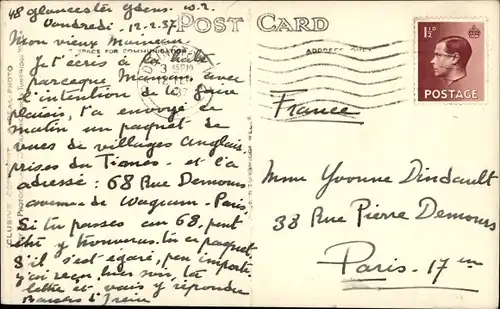 48 gloucester Gdens. W.2.
Vendredi - 12-2-37
POST CARD
Mon vieux
SPACE FOR COMMUNICATION
ADDRESS ONLY
Je t'écris à la hâte
parceque Maman, avec
l'intention de te faire
plaisir, t'a envoyé ce
matin un paquet de
vues de villages Anglais
prises du Times - et l'a
adressé : 68 Rue Demours
avenue de Wagram - Paris.
Si tu passes au 68, peut
être y trouveras-tu ce paquet.
S'il s'est égaré, peu importe
j'ai reçu hier soir, ta
lettre et vais y répondre
Baisers d'Irène
1½D
POSTAGE
France
Mme Yvonne Dindault
38 Rue Pierre Demours
Paris - 17em